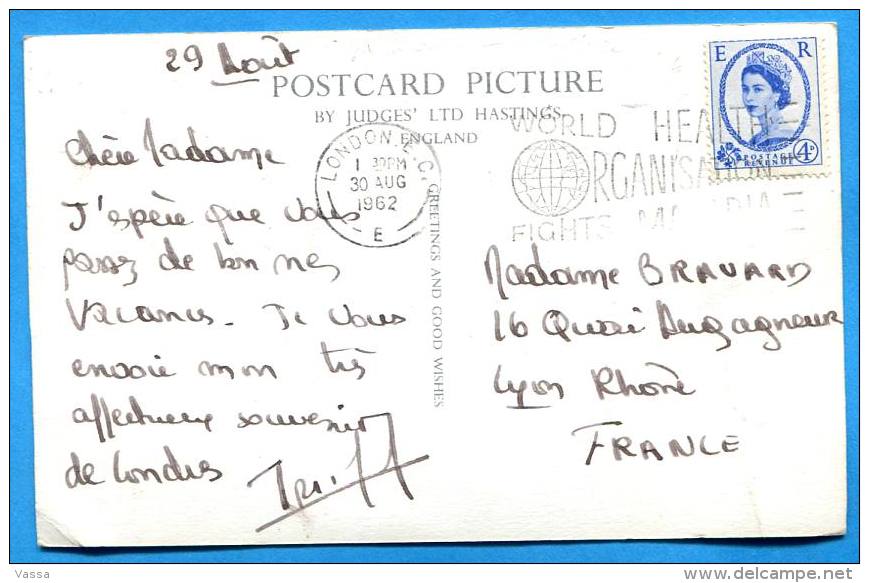 29 Août
POSTCARD PICTURE
BY JUDGES' LTD HASTINGS
ENGLAND
GREETINGS AND GOOD WISHES
Chère Madame
J'espère que vous
passez de bonnes
vacances. Je vous
envoie mon très
affectueux souvenir
de Londres
LONDON E.C.
1 30PM
30 AUG
1962
E
WORLD HEALTH
ORGANISATION
FIGHTS MALARIA
E R
POSTAGE
REVENUE
4D
Madame BRAVARD
16 Quai Augagneur
Lyon Rhône
FRANCE
Vassa
delcampe.net